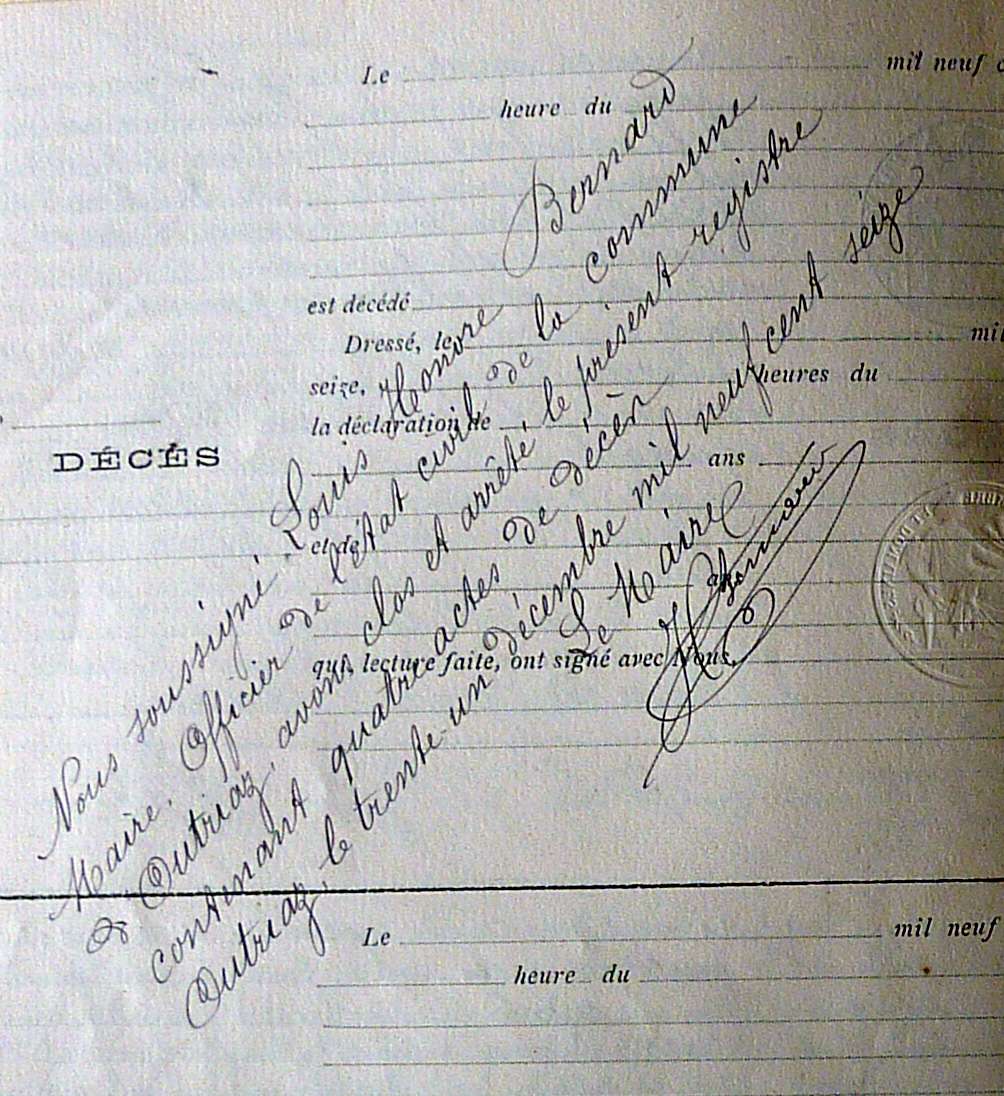 Le mil neuf
heure du
est décédé
Dressé, le mil
seize, heures du
la déclaration de
DÉCÈS
ans
et de
qui, lecture faite, ont signé avec Nous.
Nous soussigné, Louis Honoré Bernard
Maire, Officier de l'état civil de la commune
d'Outriaz, avons clos et arrêté le présent registre
contenant quatre actes de décès
Outriaz, le trente-un décembre mil neuf cent seize
Le Maire
Le mil neuf
heure du